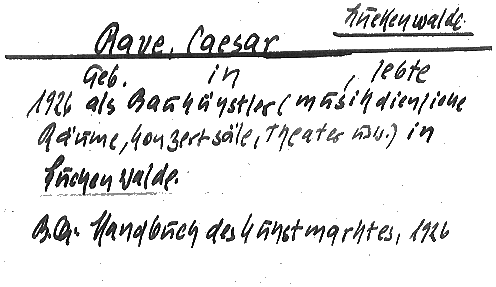 Luckenwalde.
Rave, Caesar
Geb. in , lebte
1926 als Baukünstler (musikdienliche
Räume, Konzertsäle, Theater usw.) in
Luckenwalde.
B.Qu. Handbuch des Kunstmarktes, 1926